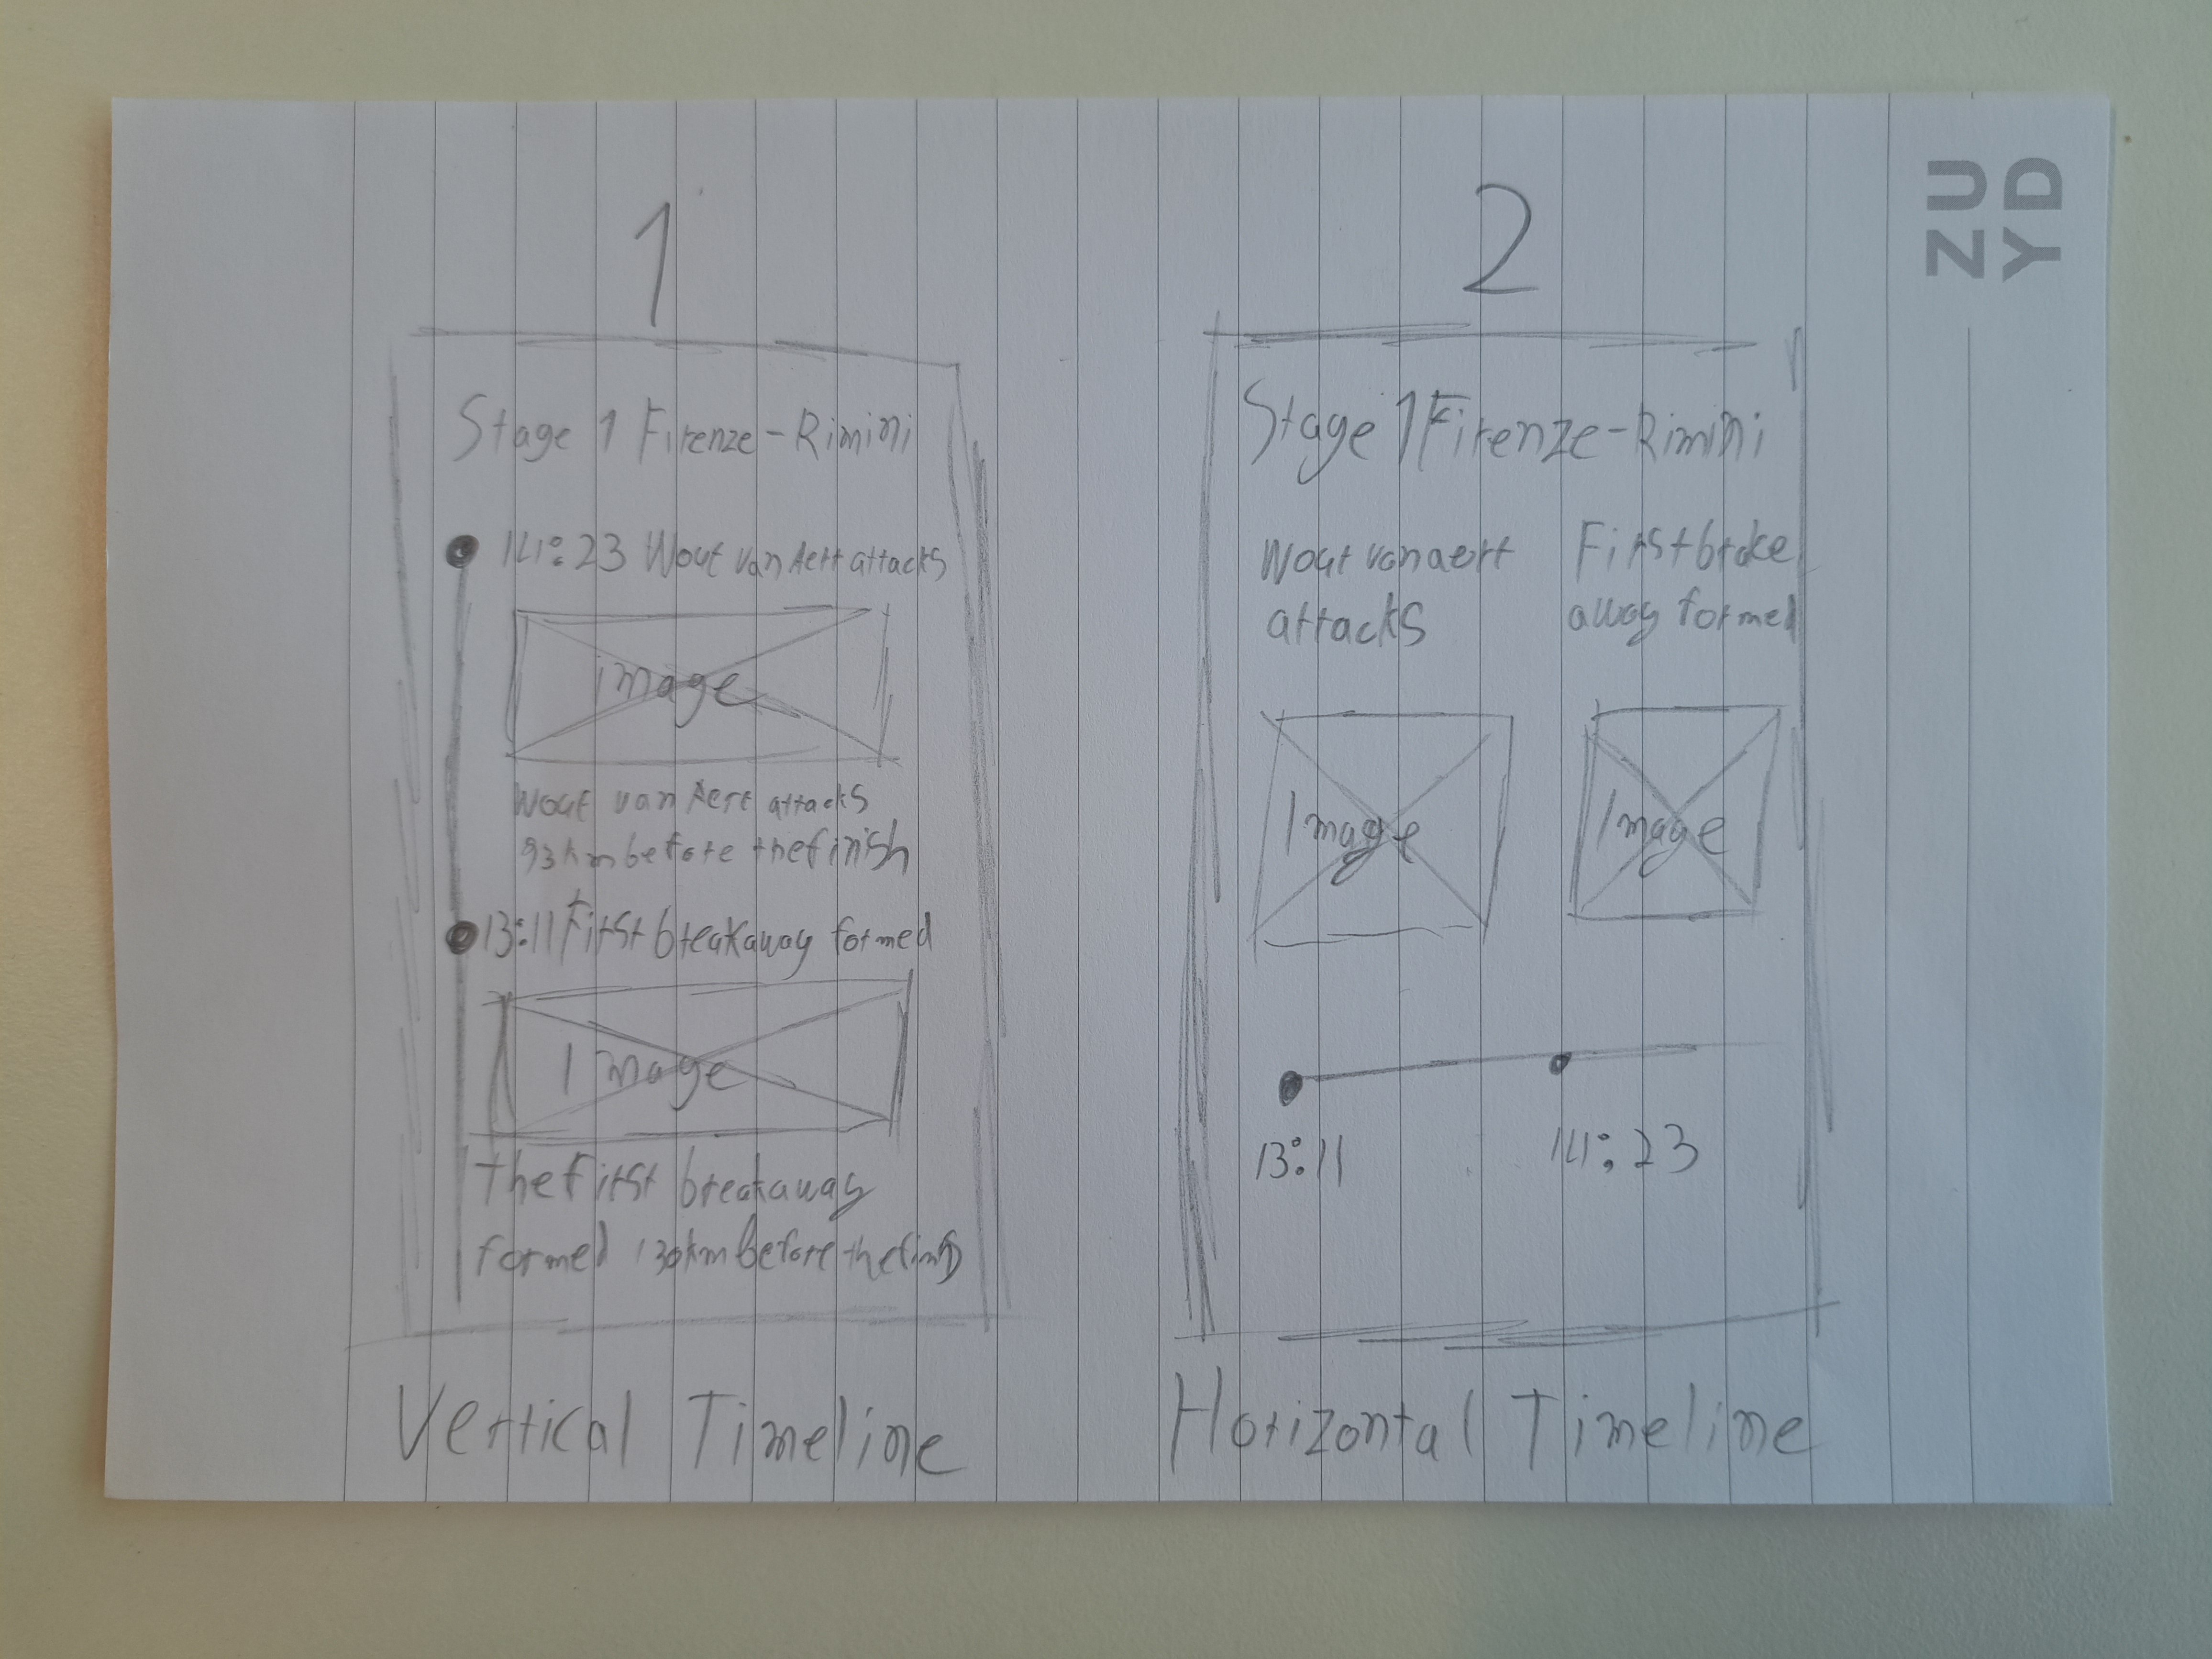 1
Stage 1 Firenze-Rimini
14:23 Wout van Aert attacks
image
Wout van Aert attacks
93km before the finish
13:11 First breakaway formed
Image
The first breakaway
formed 130km before the finish
Vertical Timeline
2
Stage 1 Firenze-Rimini
Wout van aert
attacks
First brake
away formed
Image
Image
13:11
14:23
Horizontal Timeline
ZU
YD